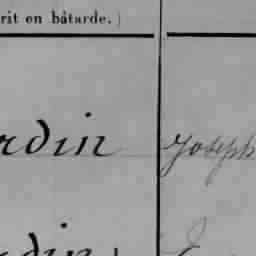 rit en bâtarde.)
rdin Joseph
rdin J